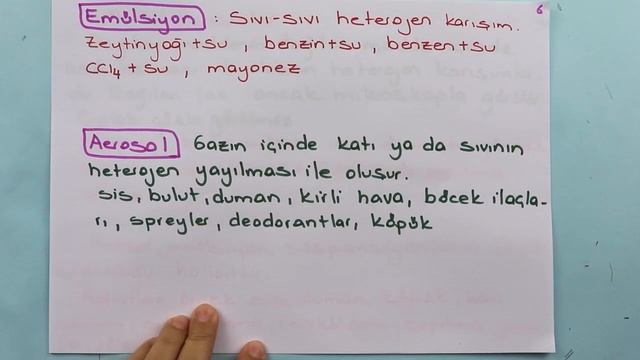 6
Emülsiyon : Sıvı-sıvı heterojen karışım.
Zeytinyağı+su , benzin+su , benzen+su
CCl4 + su , mayonez
Aerosol Gazın içinde katı ya da sıvının
heterojen yayılması ile oluşur.
sis, bulut, duman, kirli hava, böcek ilaçla-
rı, spreyler, deodorantlar, köpük